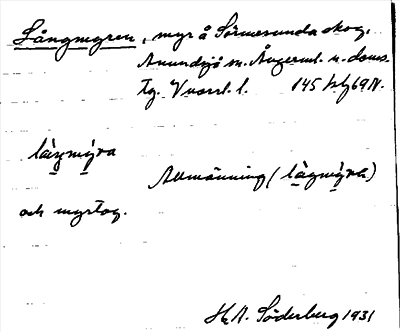 Långmyren, myr å Sörmesunda skog,
Anundsjö sn. Ångerml. n. doms.
tg. V norrl. l. 145
lågmýra
Allmänning (lågmýra)
och myrtag.
H.A. Söderberg 1931